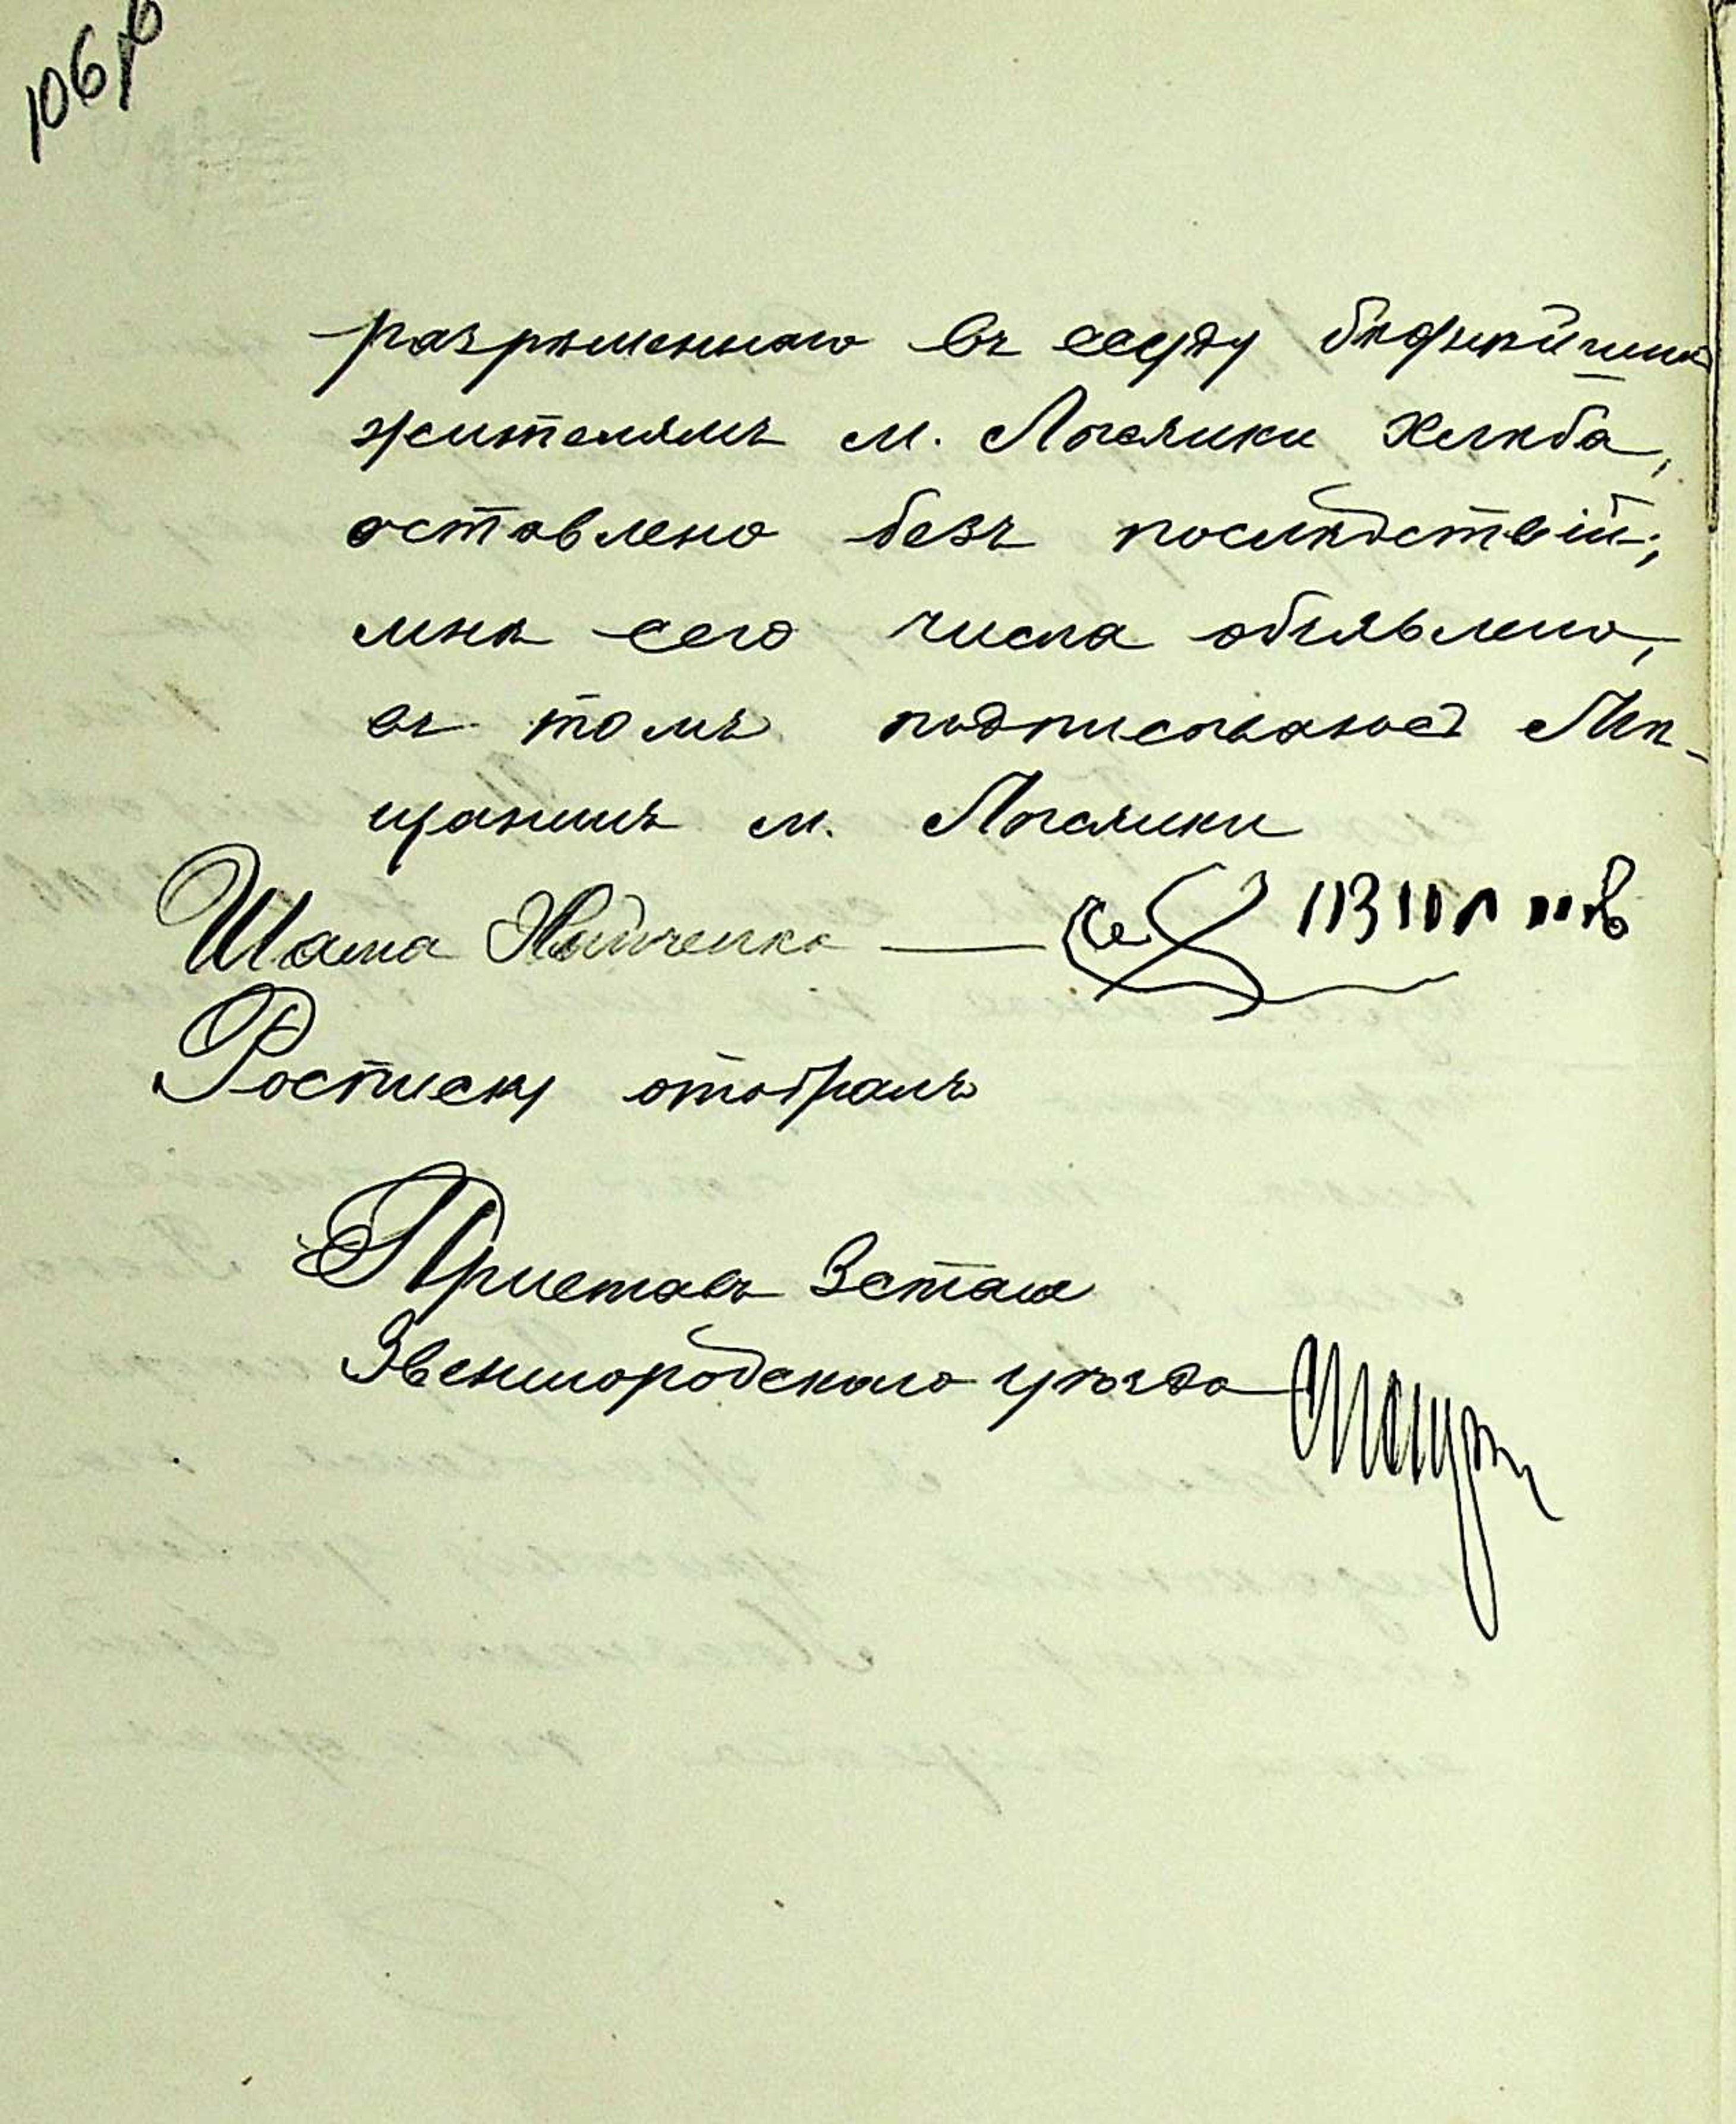 106 об
разрѣшеннаго въ ссуду бѣднѣйшимъ
жителямъ м. Лысянки хлѣба,
оставлено безъ послѣдствій;
мнѣ сего числа объявлено,
въ томъ подписываюсь Мѣ-
щанинъ м. Лысянки
Шама
Росписку отобралъ
Приставъ 3 стана
Звенигородскаго уѣзда